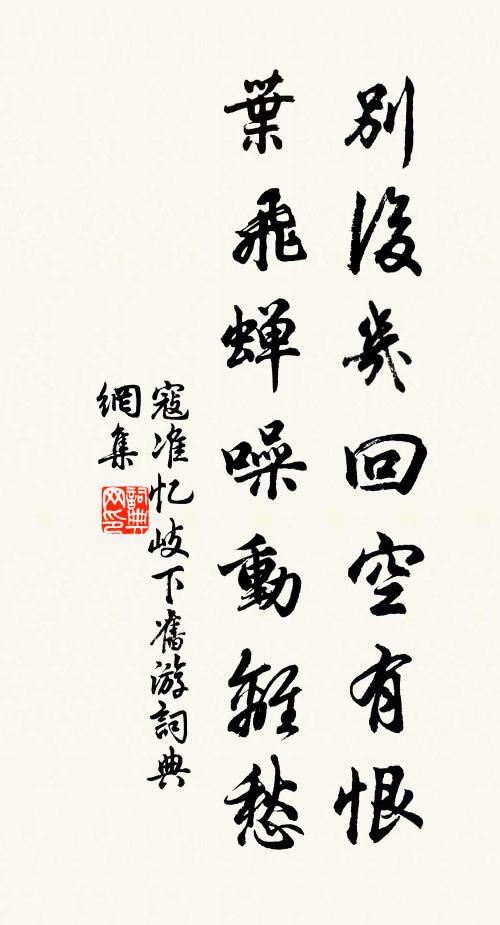 別後幾回空有恨
葉飛蟬噪動離愁
寇准忆岐下舊游詞典
網集
詞典
网印